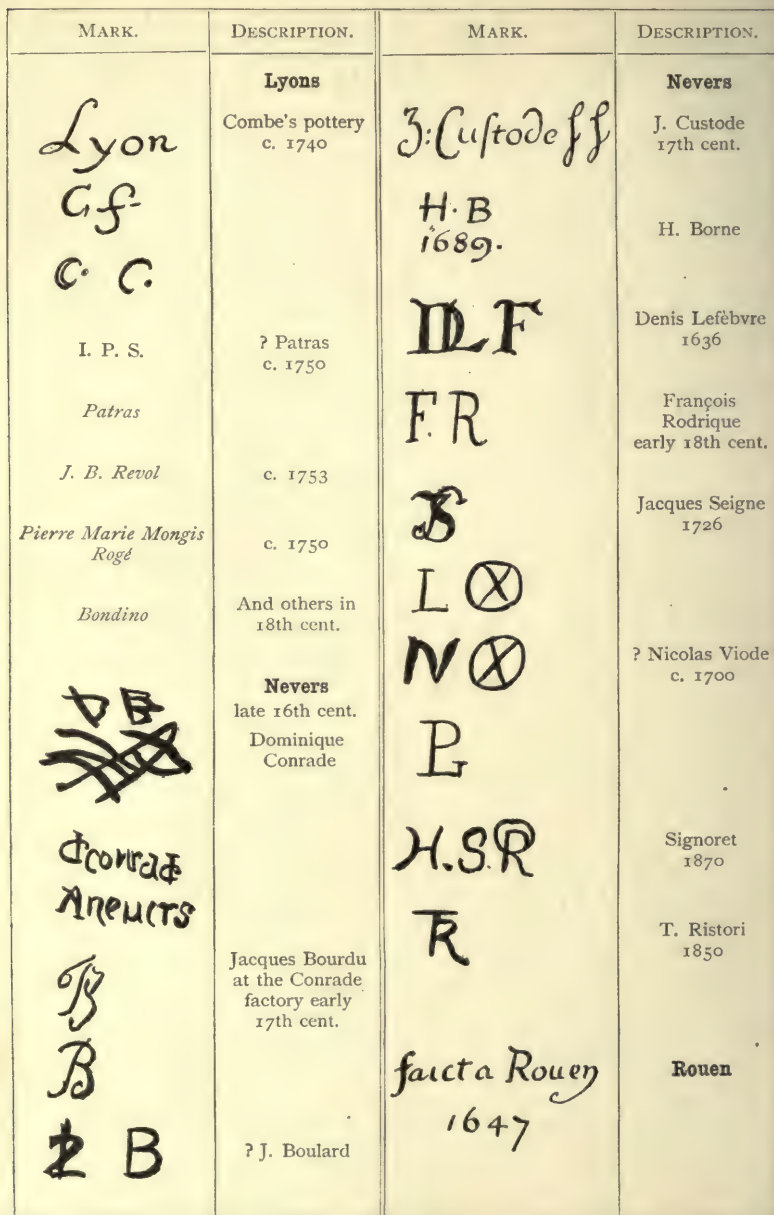 MARK.
DESCRIPTION.
Lyons
Lyon
Combe's pottery
c. 1740
Gf
C. C.
I. P. S.
? Patras
c. 1750
Patras
J. B. Revol
c. 1753
Pierre Marie Mongis
Rogé
c. 1750
Bondino
And others in
18th cent.
Nevers
late 16th cent.
Dominique
Conrade
dconrade
Aneuers
Jacques Bourdu
at the Conrade
factory early
17th cent.
B
B
? J. Boulard
MARK.
DESCRIPTION.
Nevers
J:Custode ff
J. Custode
17th cent.
H·B
1689.
H. Borne
DLF
Denis Lefèbvre
1636
F.R
François
Rodrique
early 18th cent.
Jacques Seigne
1726
L
N
? Nicolas Viode
c. 1700
H.S.R
Signoret
1870
TR
T. Ristori
1850
faict a Rouen
1647
Rouen